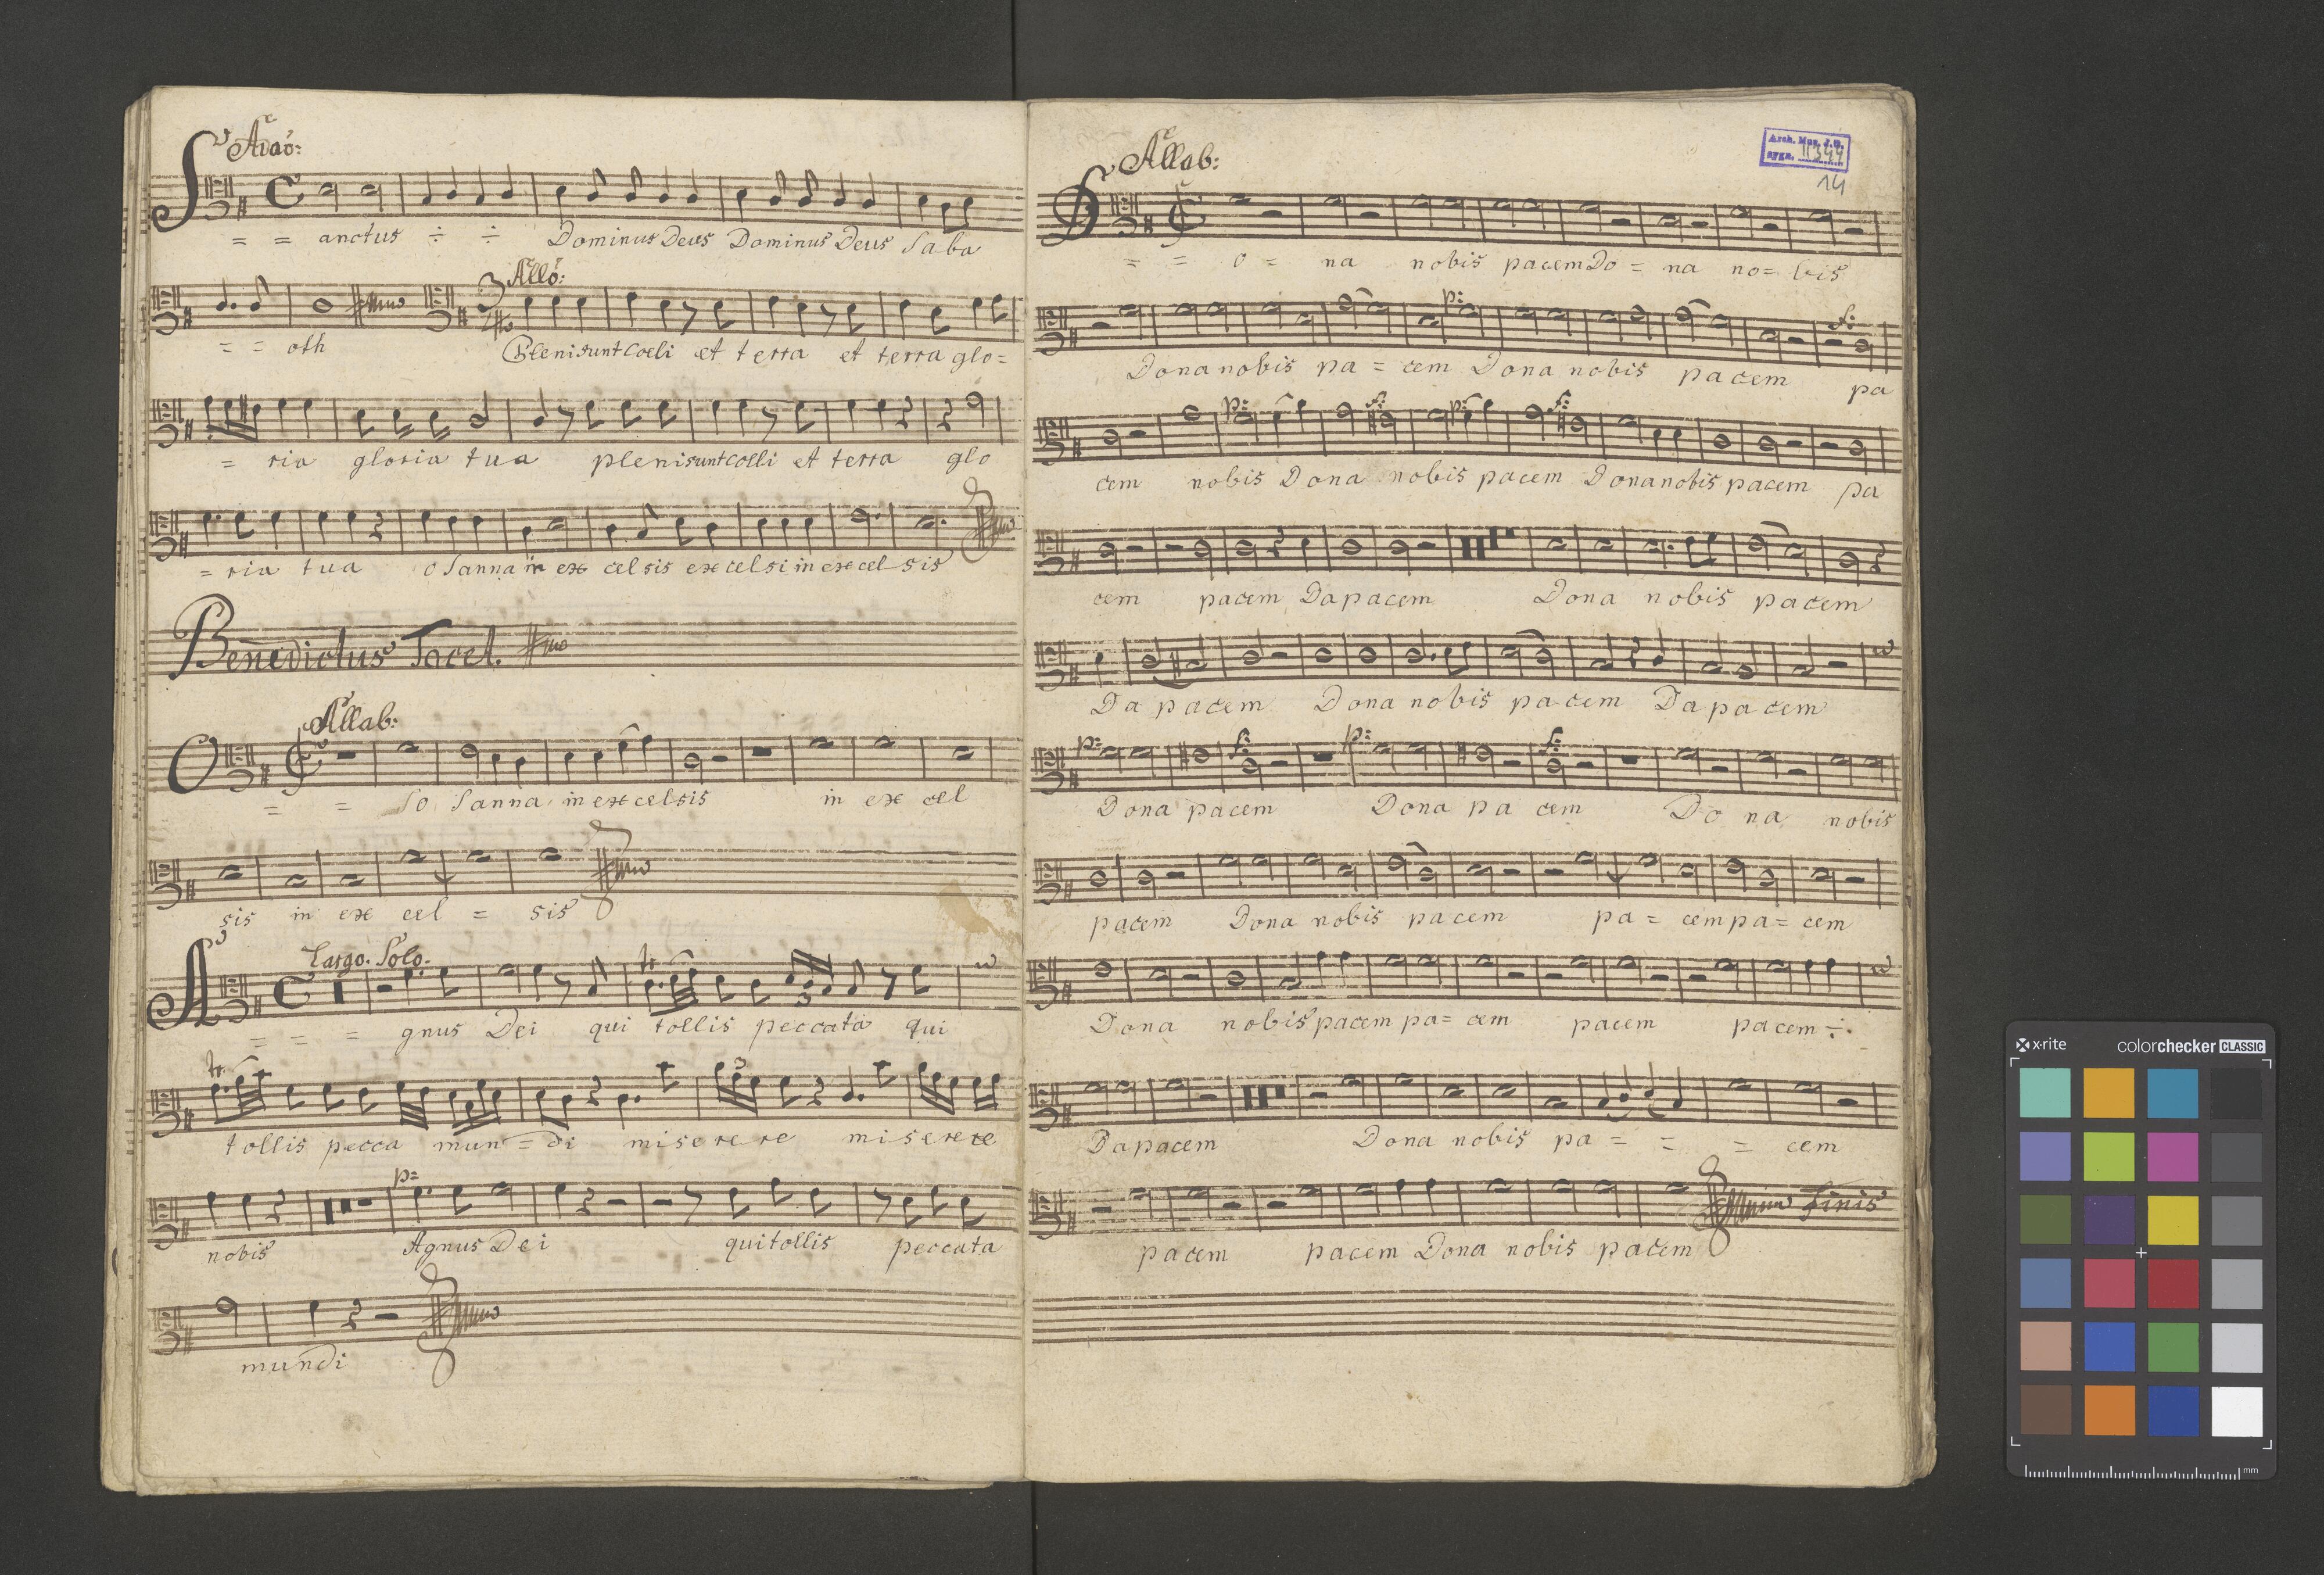 Adaö:
S = = anctus ÷ ÷ Dominus Deus Dominus Deus Saba
Allö:
= = oth Pleni sunt Coeli et terra et terra glo=
= ria gloria tua pleni sunt coeli et terra glo
= ria tua oSanna in ex celsis excelsi in excel sis
Benedictus Tacet.
Allab:
O = = So Sanna in excelsis in ex cel
sis in ex cel = sis
Largo. Solo.
tr
3
A = = = gnus Dei qui tollis peccata qui
tr. 3
tollis pecca mun = di mise re re miserere
p=
nobis Agnus Dei qui tollis peccata
mundi
Arch. Muz. J. G.
sygn. II 344
14
Allab:
D = = o = na nobis pacem Do = na no= bis
p: f:
Dona nobis pa = cem Dona nobis pacem pa
p: f: p: f:
cem nobis Dona nobis pacem Dona nobis pacem pa
cem pacem Da pacem Dona nobis pacem
Da pacem Dona nobis pacem Da pacem
p: f: p: f:
Dona pacem Dona pa cem Do na nobis
pacem Dona nobis pacem pa = cem pa = cem
Dona nobis pacem pa= cem pacem pacem ÷.
Da pacem Dona nobis pa = = = cem
Finis
pacem pacem Dona nobis pacem
x·rite colorchecker CLASSIC
mm